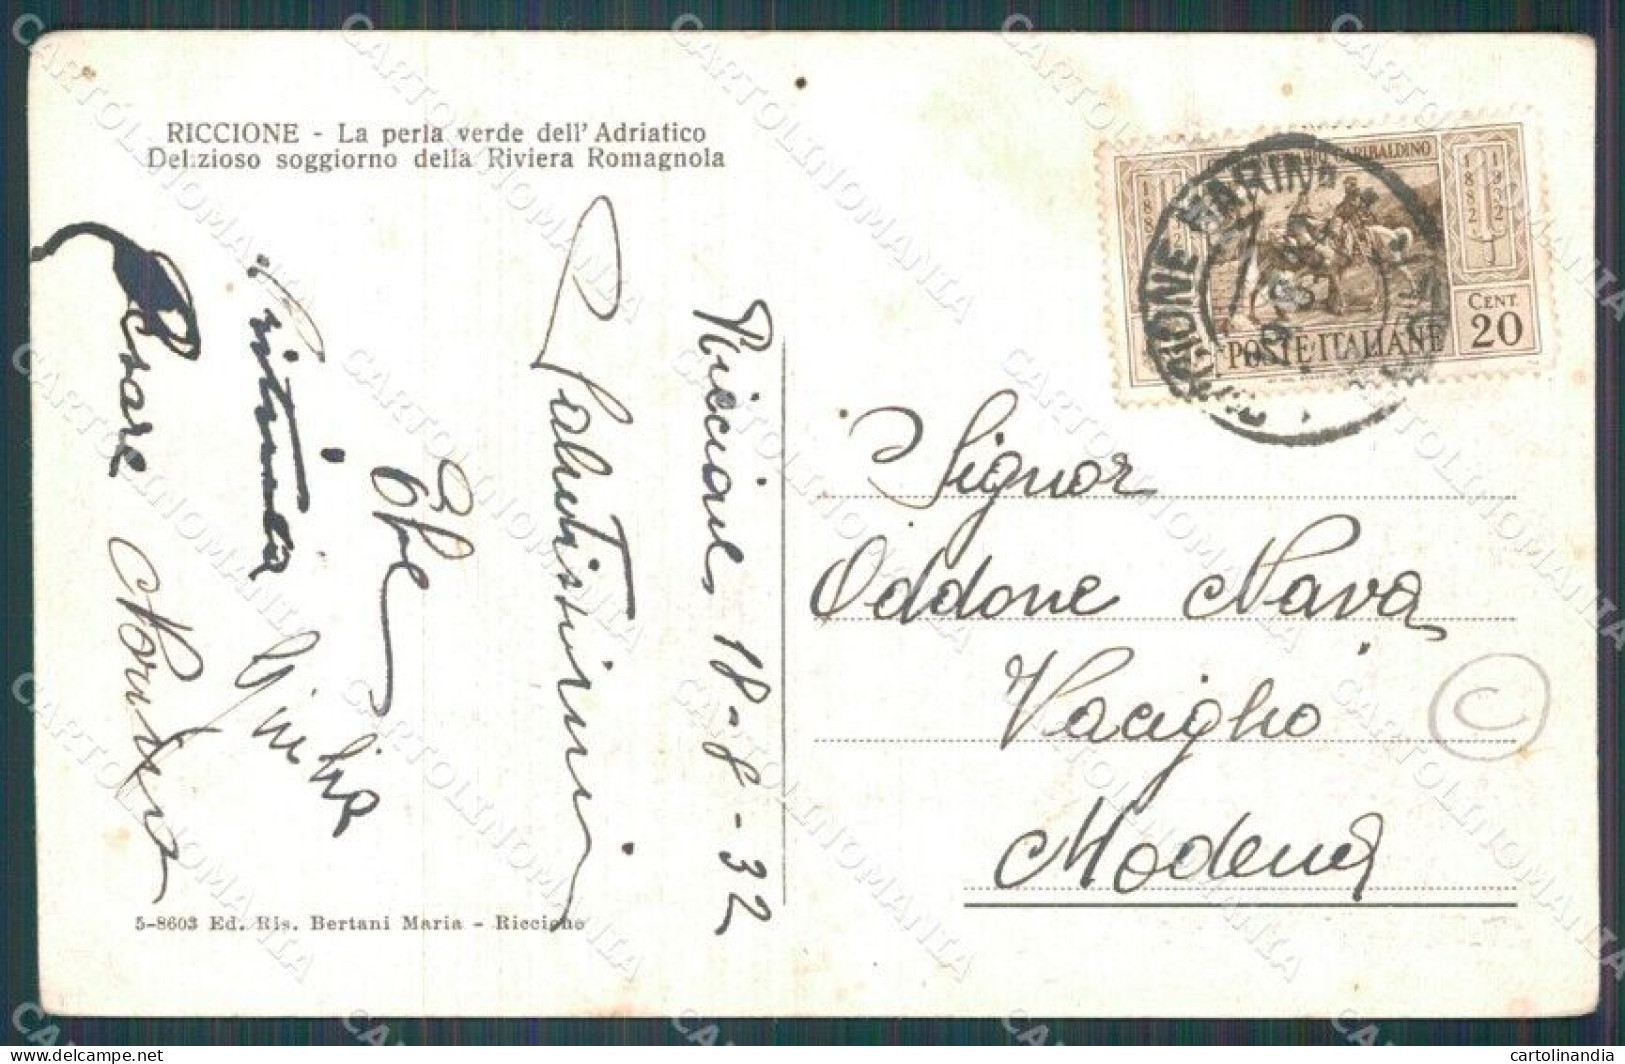 RICCIONE - La perla verde dell'Adriatico
Delizioso soggiorno della Riviera Romagnola
Riccione, 18-8-32
Salutissimi
Cesare
5-8603 Ed. Ris. Bertani Maria - Riccione
CENT.
20
POSTE ITALIANE
GARIBALDINO
1882
1932
RICCIONE MARINA
Signor
Oddone Nava
Vaciglio
Modena
C
delcampe.net
cartolinandia
CARTOLINOMANIA